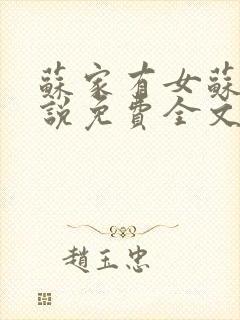 蘇家有女蘇
說免費全文
趙玉忠